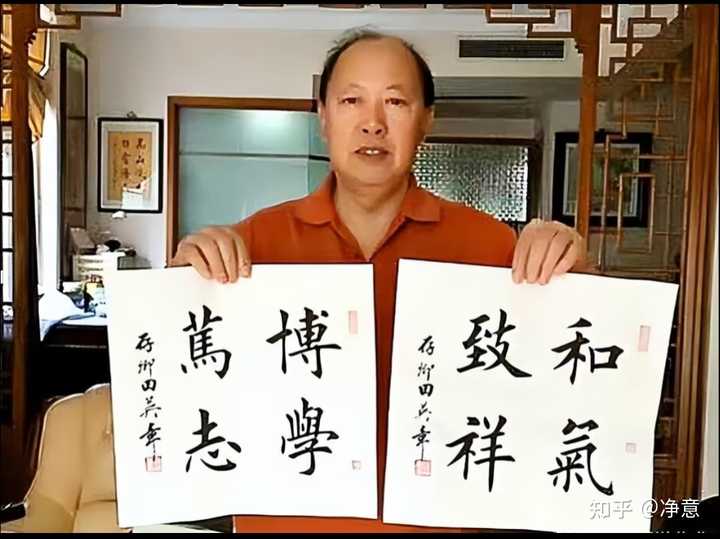 博學
篤志
存卿田英章
和氣
致祥
存卿田英章
知乎 @净意